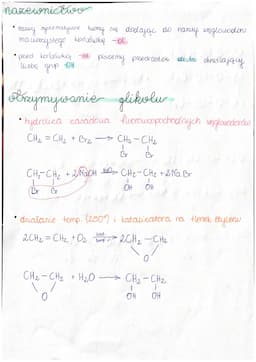 nazewnictwo
• nazwy systematyczne tworzy się dodając do nazwy węglowodoru
macierzystego końcówkę -ol
• przed końcówką -ol piszemy przedrostek określający
liczbę grup -OH
otrzymywanie glikolu
• hydroliza zasadowa bromopochodnych węglowodorów
CH₂ = CH₂ + Br₂ → CH₂ - CH₂
Br Br
CH₂ - CH₂ + 2NaOH → CH₂ - CH₂ + 2NaBr
Br Br OH OH
• działanie temp. (250°) i katalizatora na tlenek etylenu
2CH₂ = CH₂ + O₂ → 2CH₂ - CH₂
O
CH₂ - CH₂ + H₂O → CH₂ - CH₂
O OH OH